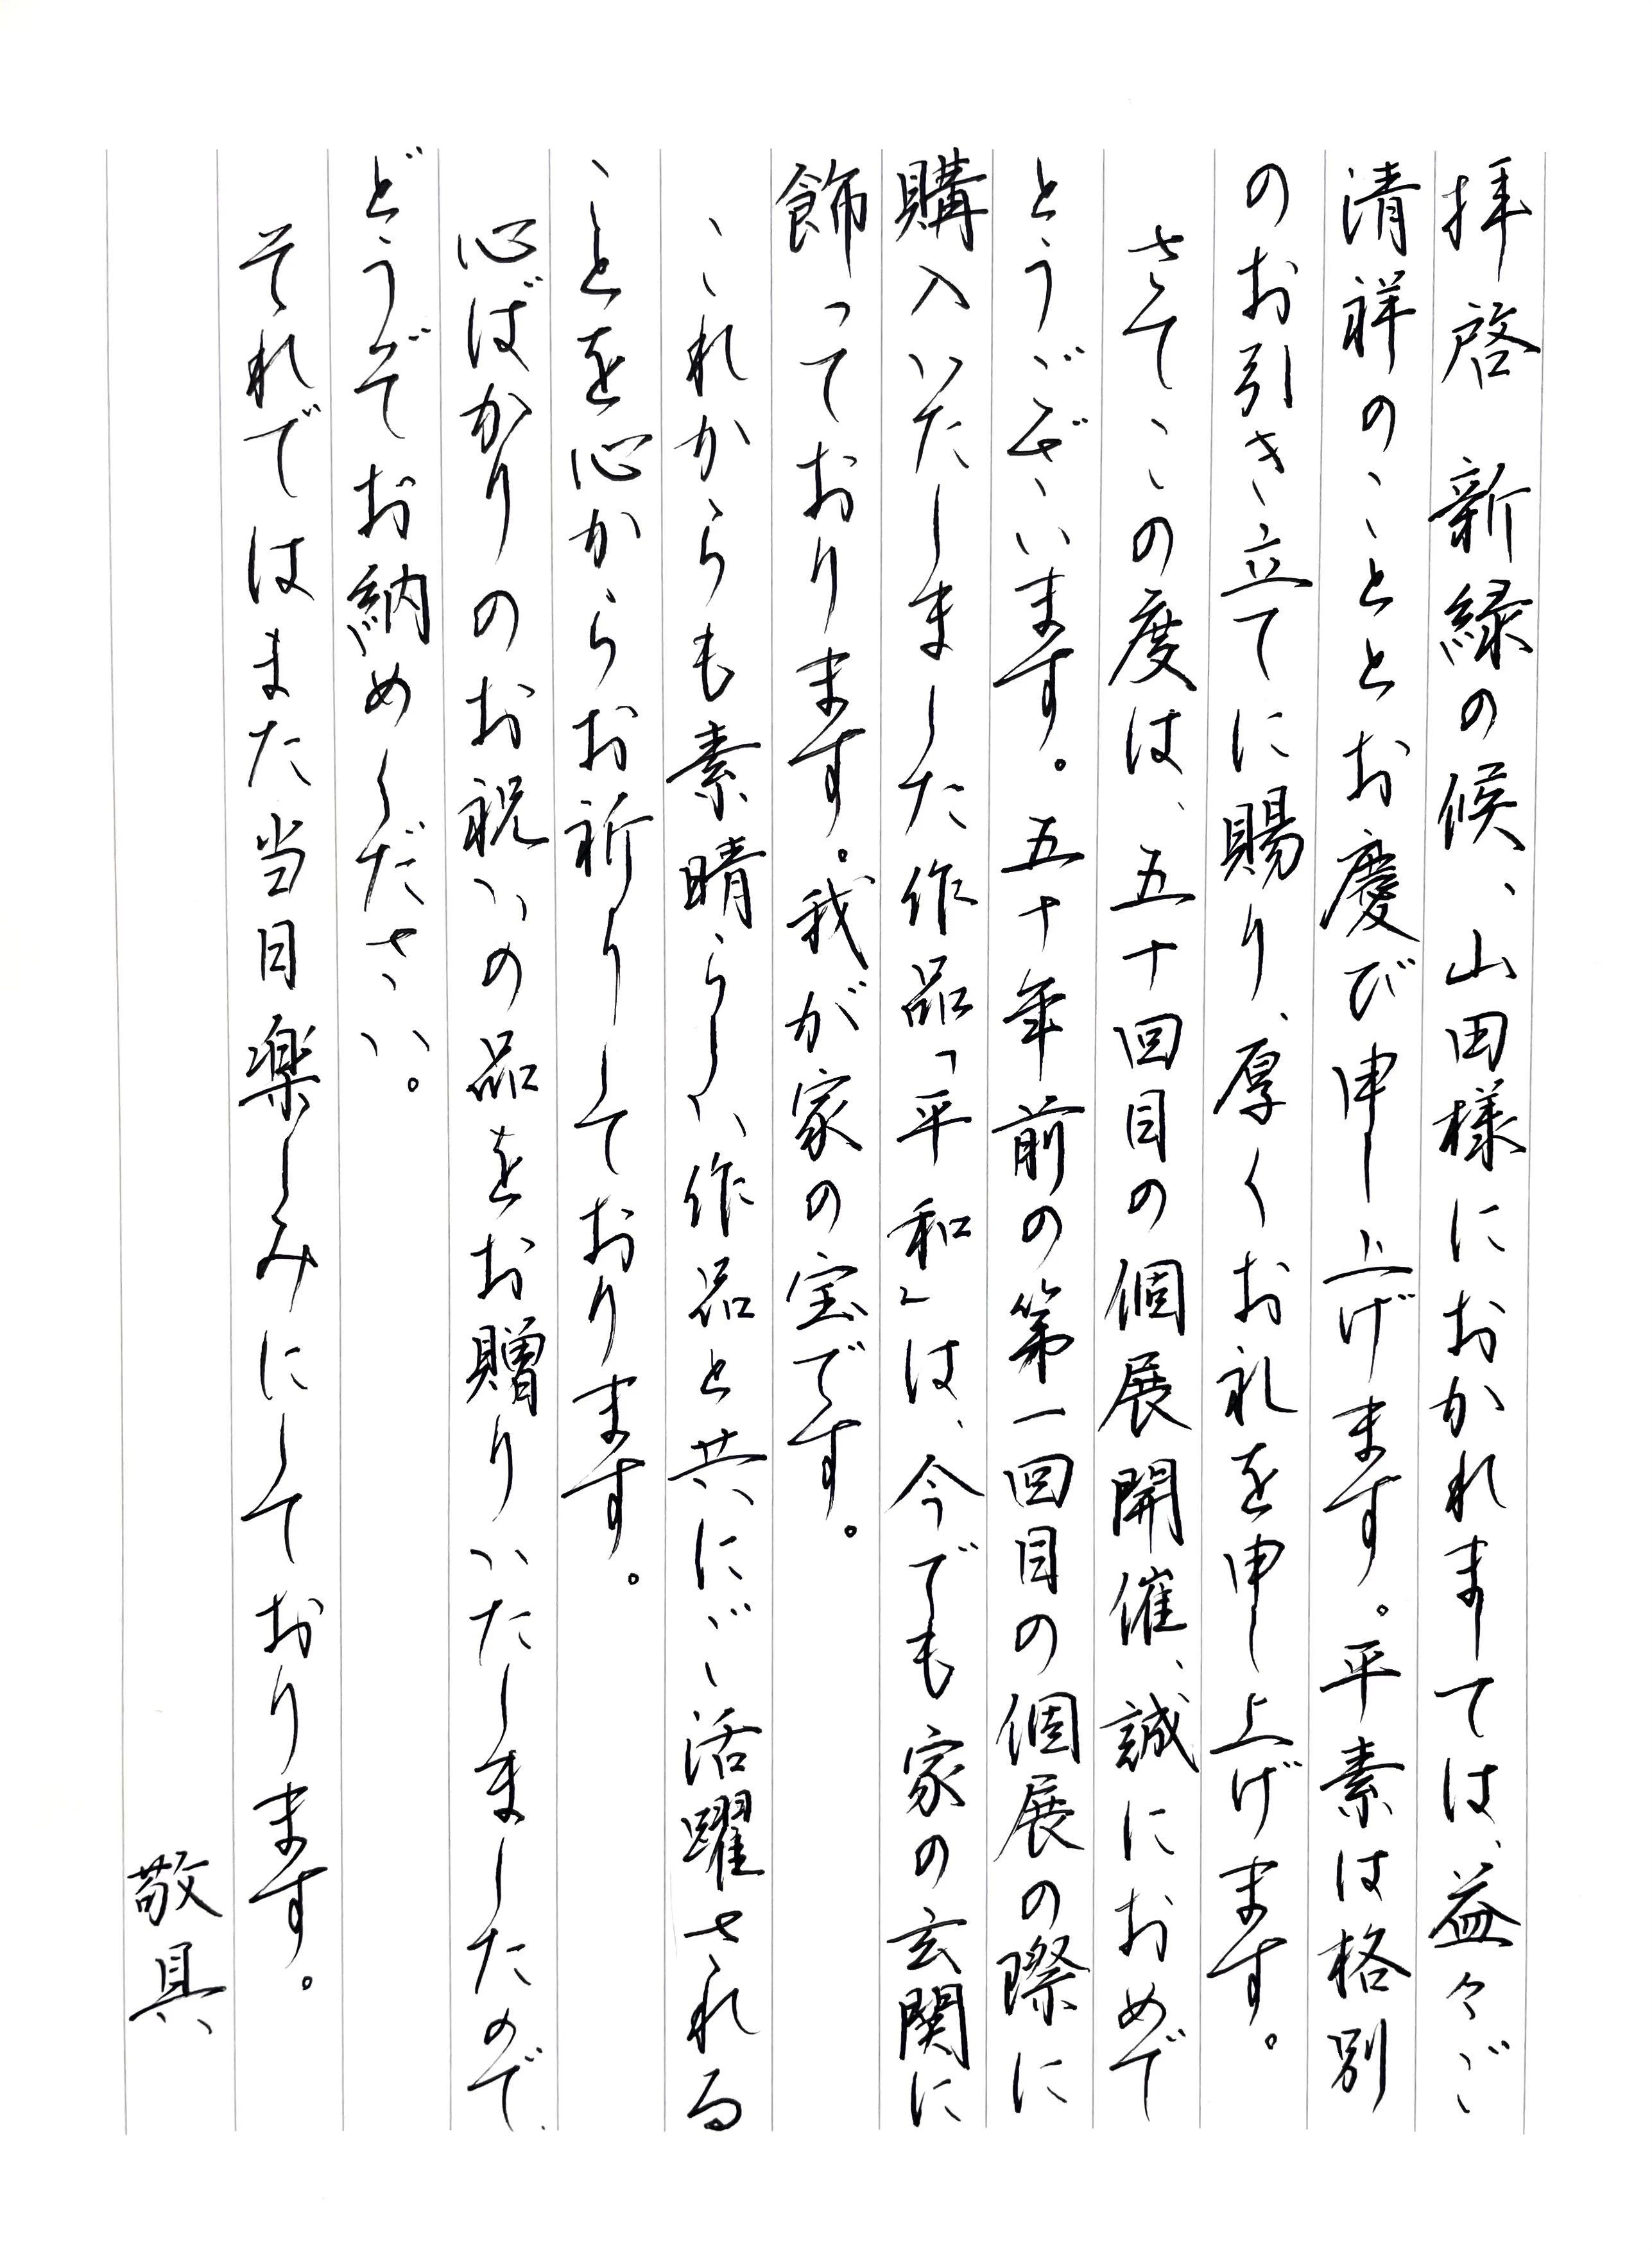 拝啓　新緑の候、山田様におかれましては、益々ご
清祥のこととお慶び申し上げます。平素は格別
のお引き立てに賜り、厚くお礼を申し上げます。
さてこの度は、五十回目の個展開催、誠におめで
とうございます。五十年前の第一回目の個展の際に
購入いたしました作品「平和」は、今でも家の玄関に
飾っております。我が家の宝です。
これからも素晴らしい作品と共にご活躍される
ことを心からお祈りしております。
心ばかりのお祝いの品をお贈りいたしましたので、
どうぞお納めください。
それではまた当日楽しみにしております。
敬具